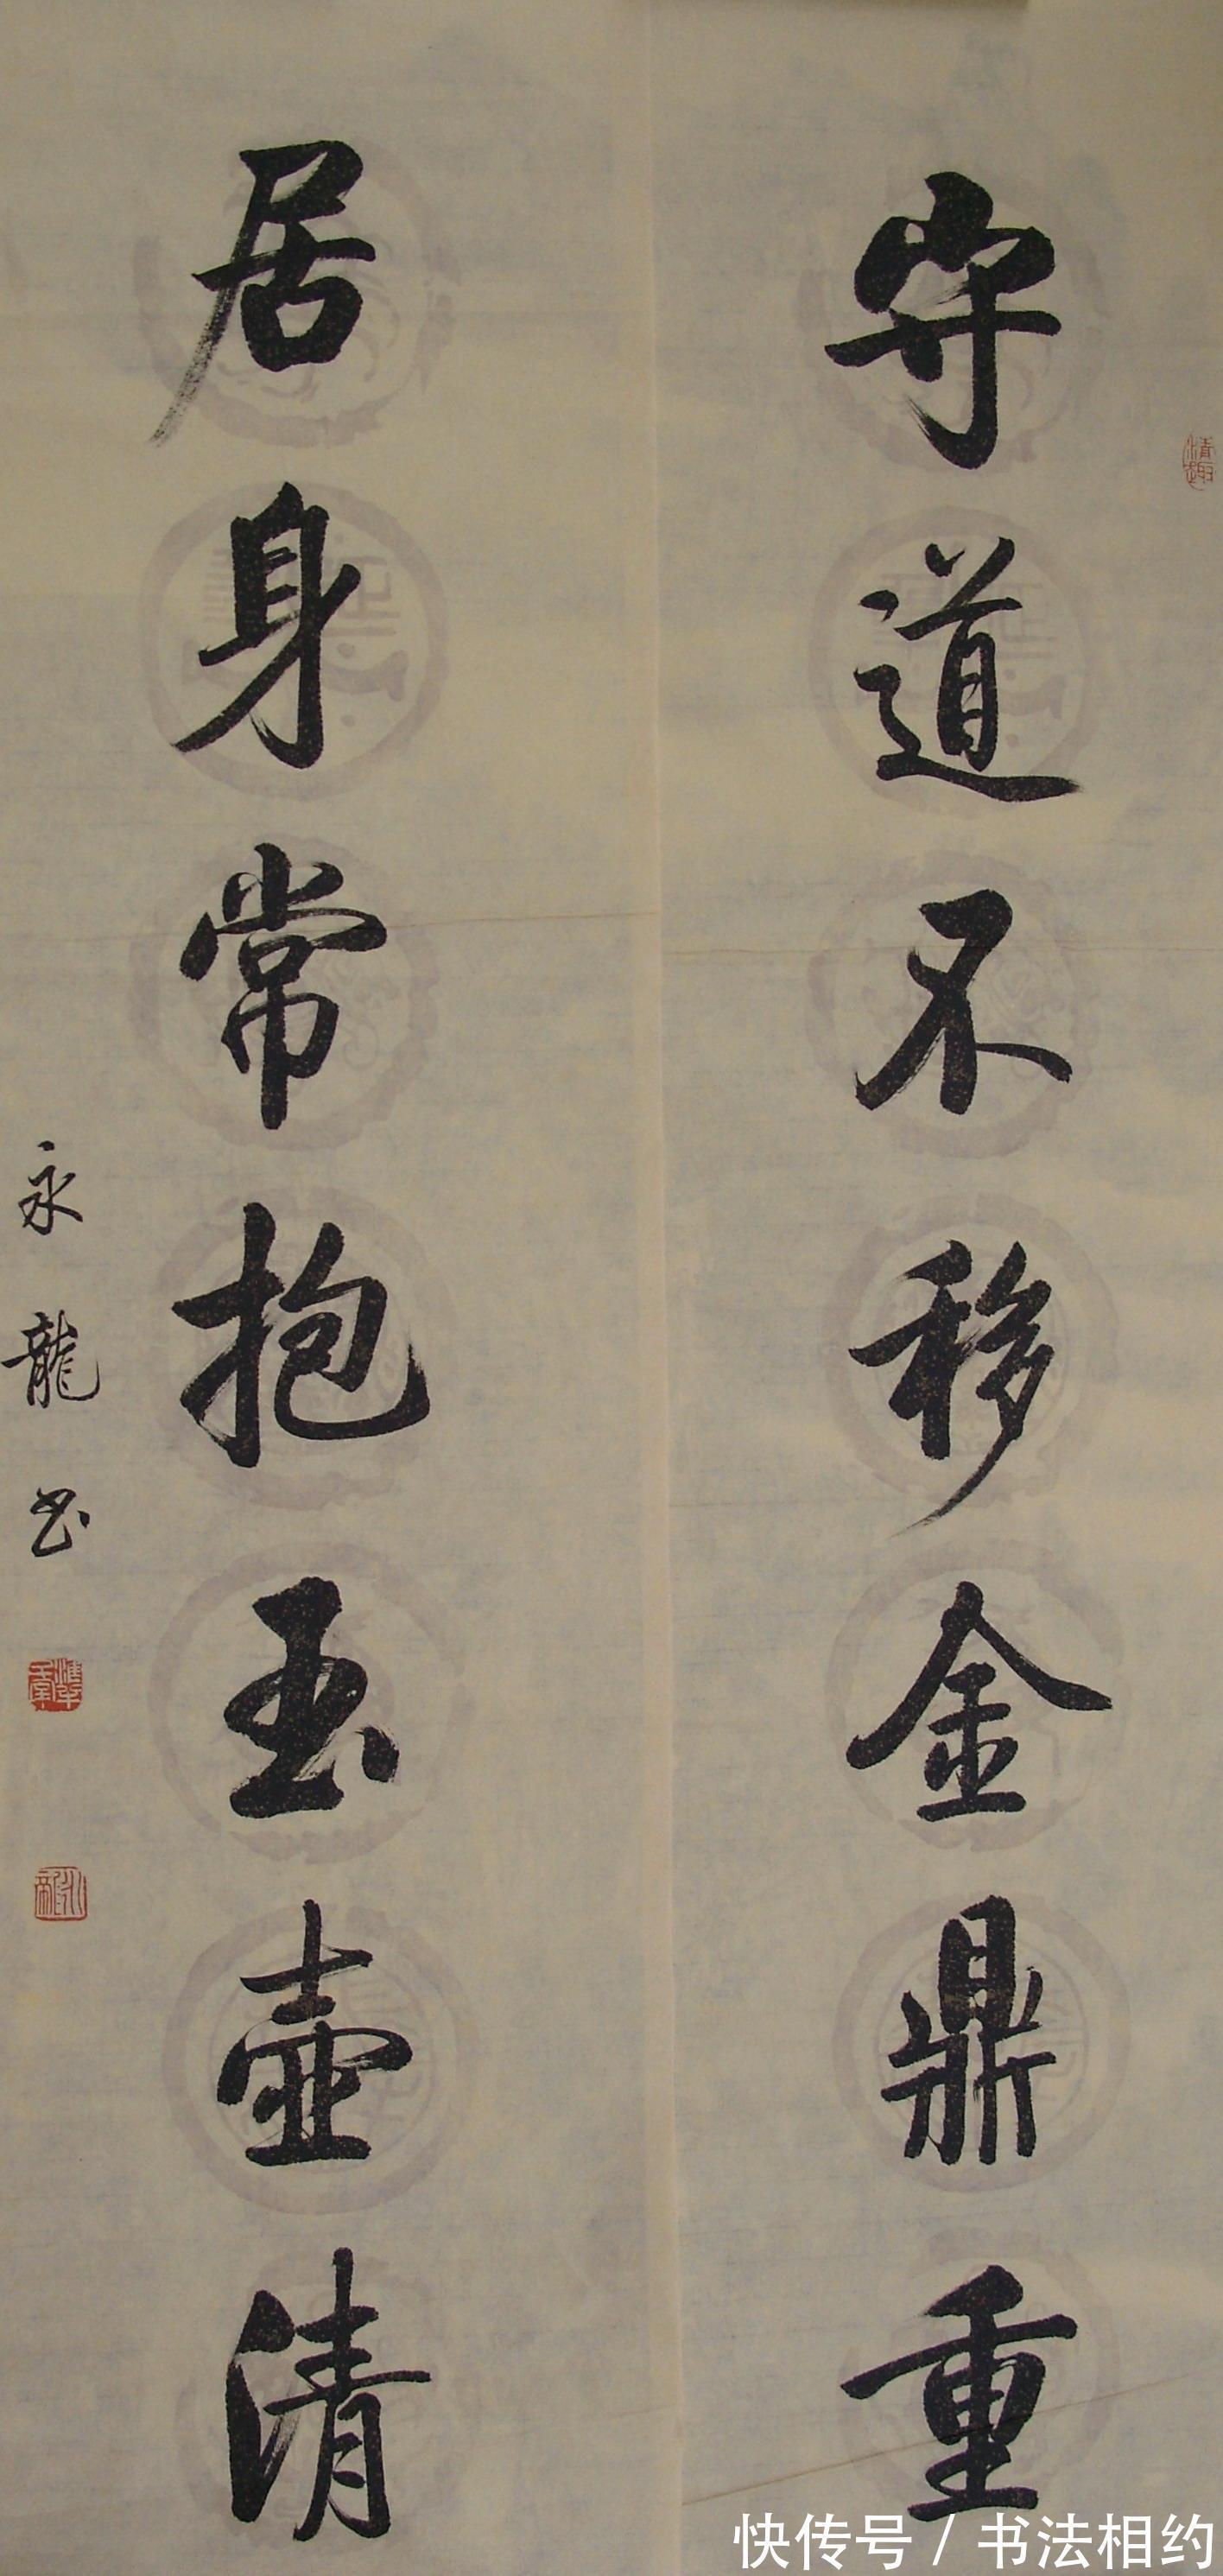 守道不移金鼎重
居身常抱玉壺清
永龍书
快传号 / 书法相约